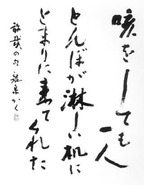 咳をしても一人
とんぼが淋しい机に
とまりに来てくれた
放哉の句 かく